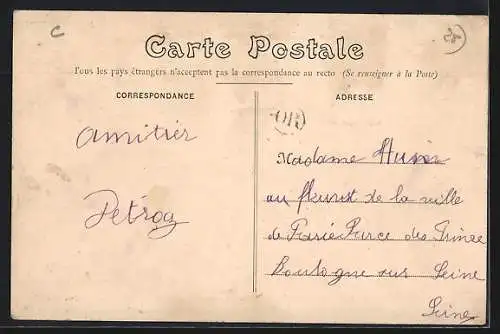 C
25
Carte Postale
Tous les pays étrangers n'acceptent pas la correspondance au recto (Se renseigner à la Poste)
CORRESPONDANCE
ADRESSE
OR
amitier
Madame
Petroq
au fleurist de la ville
de Parie Parce des Prince
Boulogne sur Seine
Seine